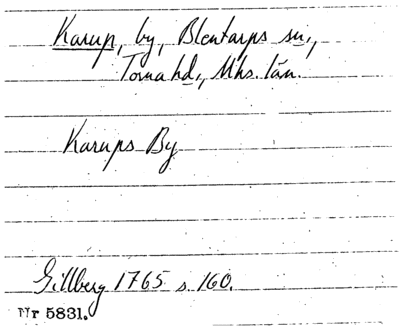 Karup, by, Blentarps sn.,
Torna hd., Mhs. län.
Karups By
Gillberg 1765 s. 160.
Nr 5831.